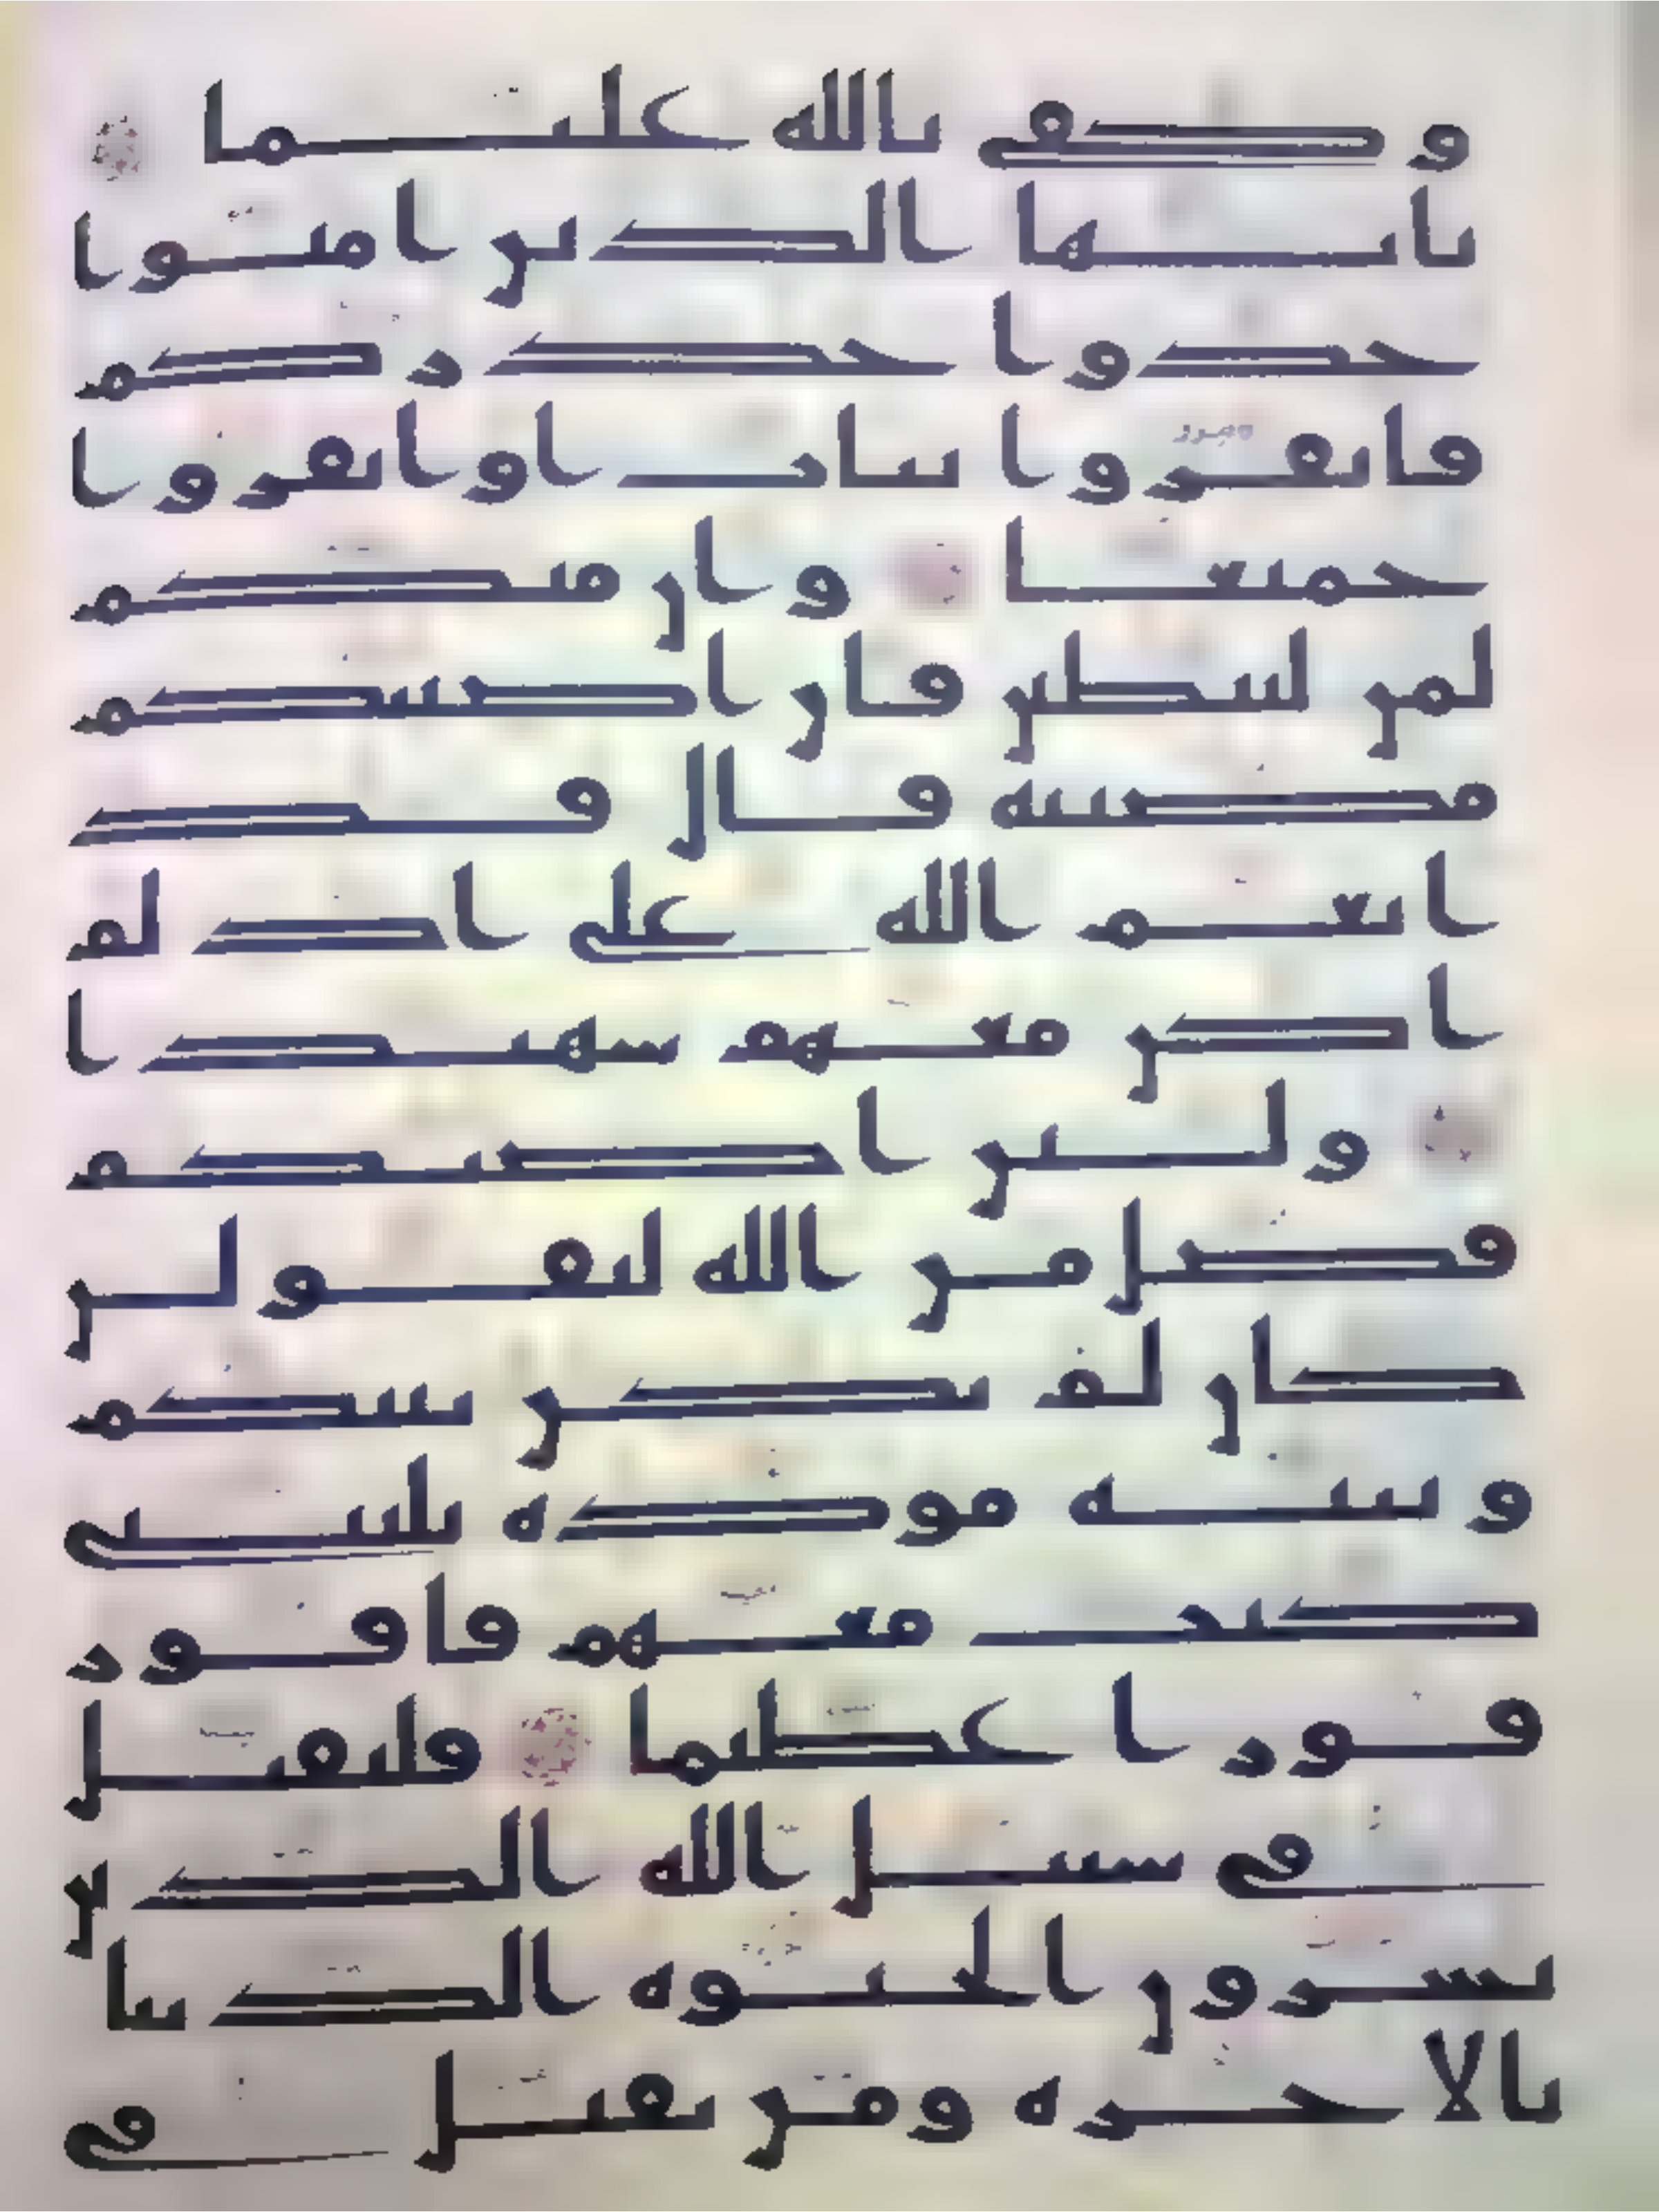 وكفى بالله عليما
يايها الذين امنوا
خذوا حذركم
فانفروا ثبات اوانفروا
جميعا وان منكم
لمن ليبطين فان اصبتكم
مصيبه قال قد
انعم الله على اذ لم
اكن معهم شهيدا
ولين اصبكم
فضل من الله ليقولن
كان لم تكن بينكم
وبينه موده يليتني
كنت معهم فافوز
فوزا عظيما فليقتل
في سبيل الله الذين
يشرون الحيوه الدنيا
بالاخره ومن يقتل في